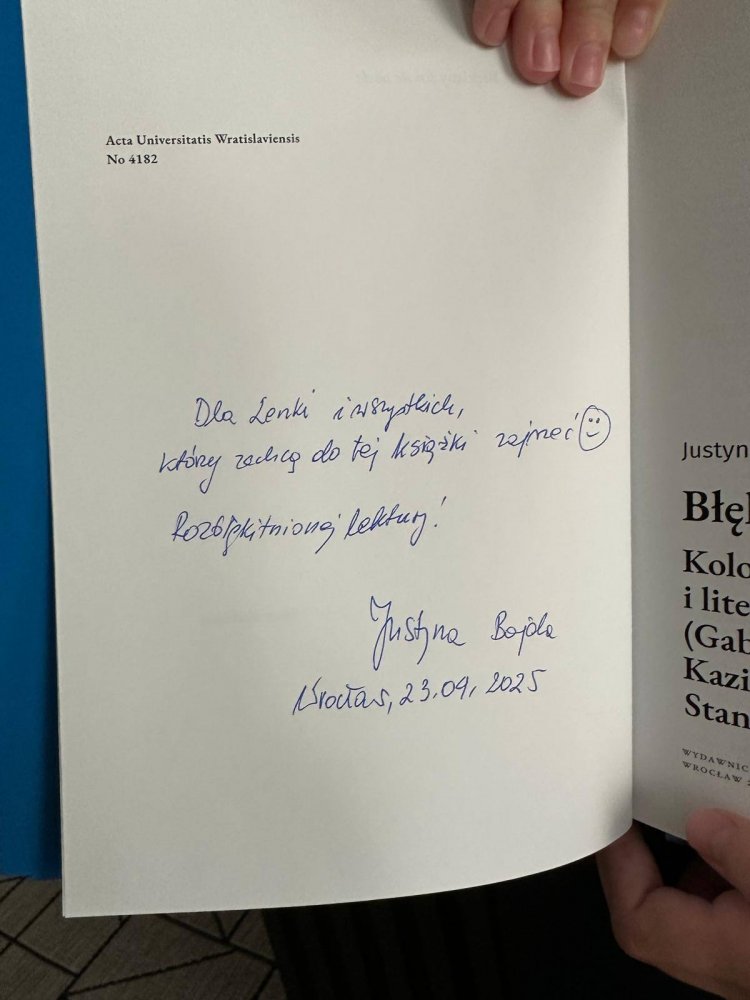 Acta Universitatis Wratislaviensis
No 4182
Dla Lenki i wszystkich,
którzy zechcą do tej książki zajrzeć
Rozbłękitnionej lektury!
Justyna Bajda
Wrocław, 23.09.2025
Justyn
Błę
Kolo
i lite
(Gab
Kazi
Stan
WYDAWNIC
WROCŁAW 2